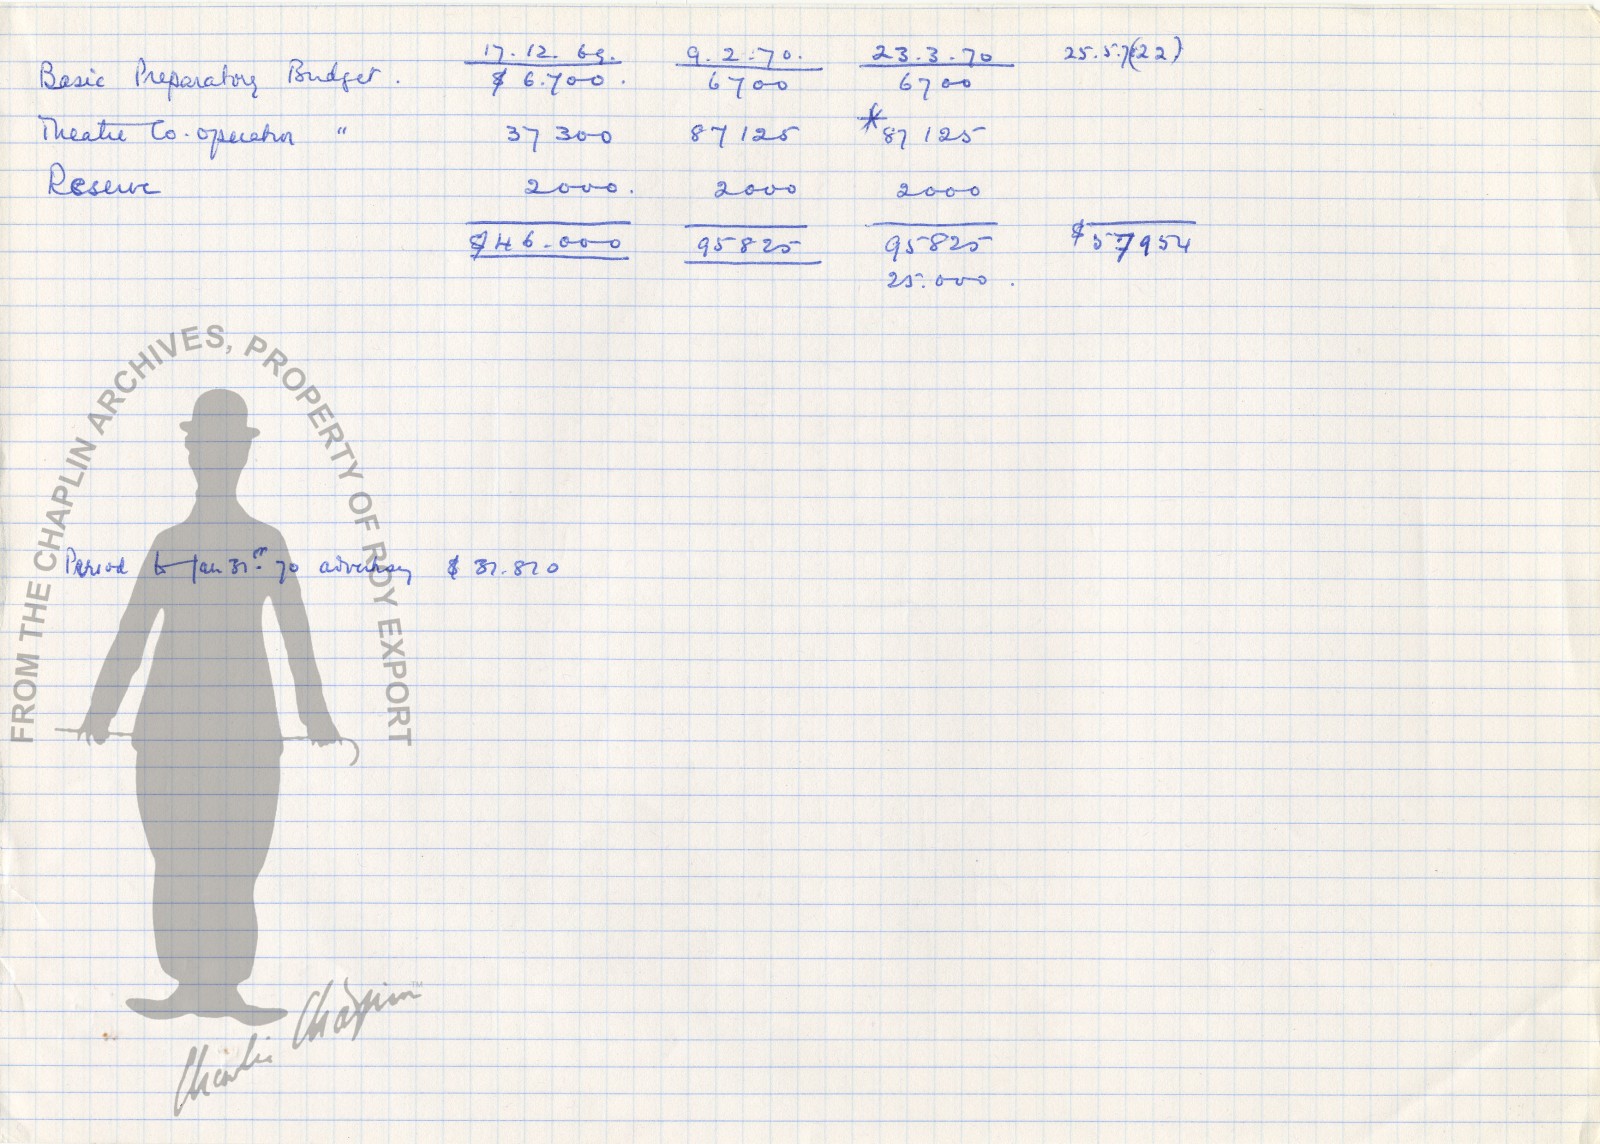 17.12.69. 9.2.70. 23.3.70 25.5.7(22)
Basic Preparatory Budget. $ 6.700. 6700 6700
Theatre Co-operation " 37 300 87125 *87125
Reserve 2000. 2000 2000
$46.000 95825 95825 $57954
25.000.
FROM THE CHAPLIN ARCHIVES, PROPERTY OF ROY EXPORT
Period to Jan 31st 70 advertising $ 31.810
Charlie Chaplin™